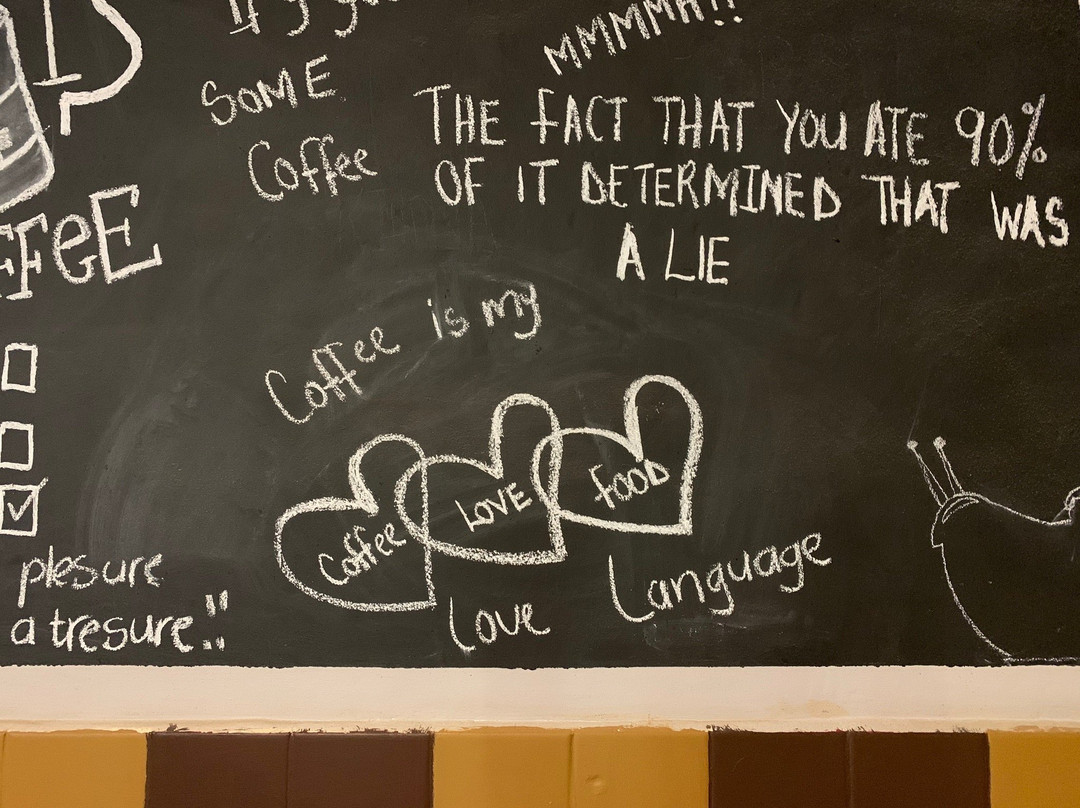 MMMMM!!
SOME
Coffee
THE FACT THAT YOU ATE 90%
OF IT DETERMINED THAT WAS
A LIE
Coffee is my
Coffee
LOVE
FOOD
Love Language
plesure
a tresure!!